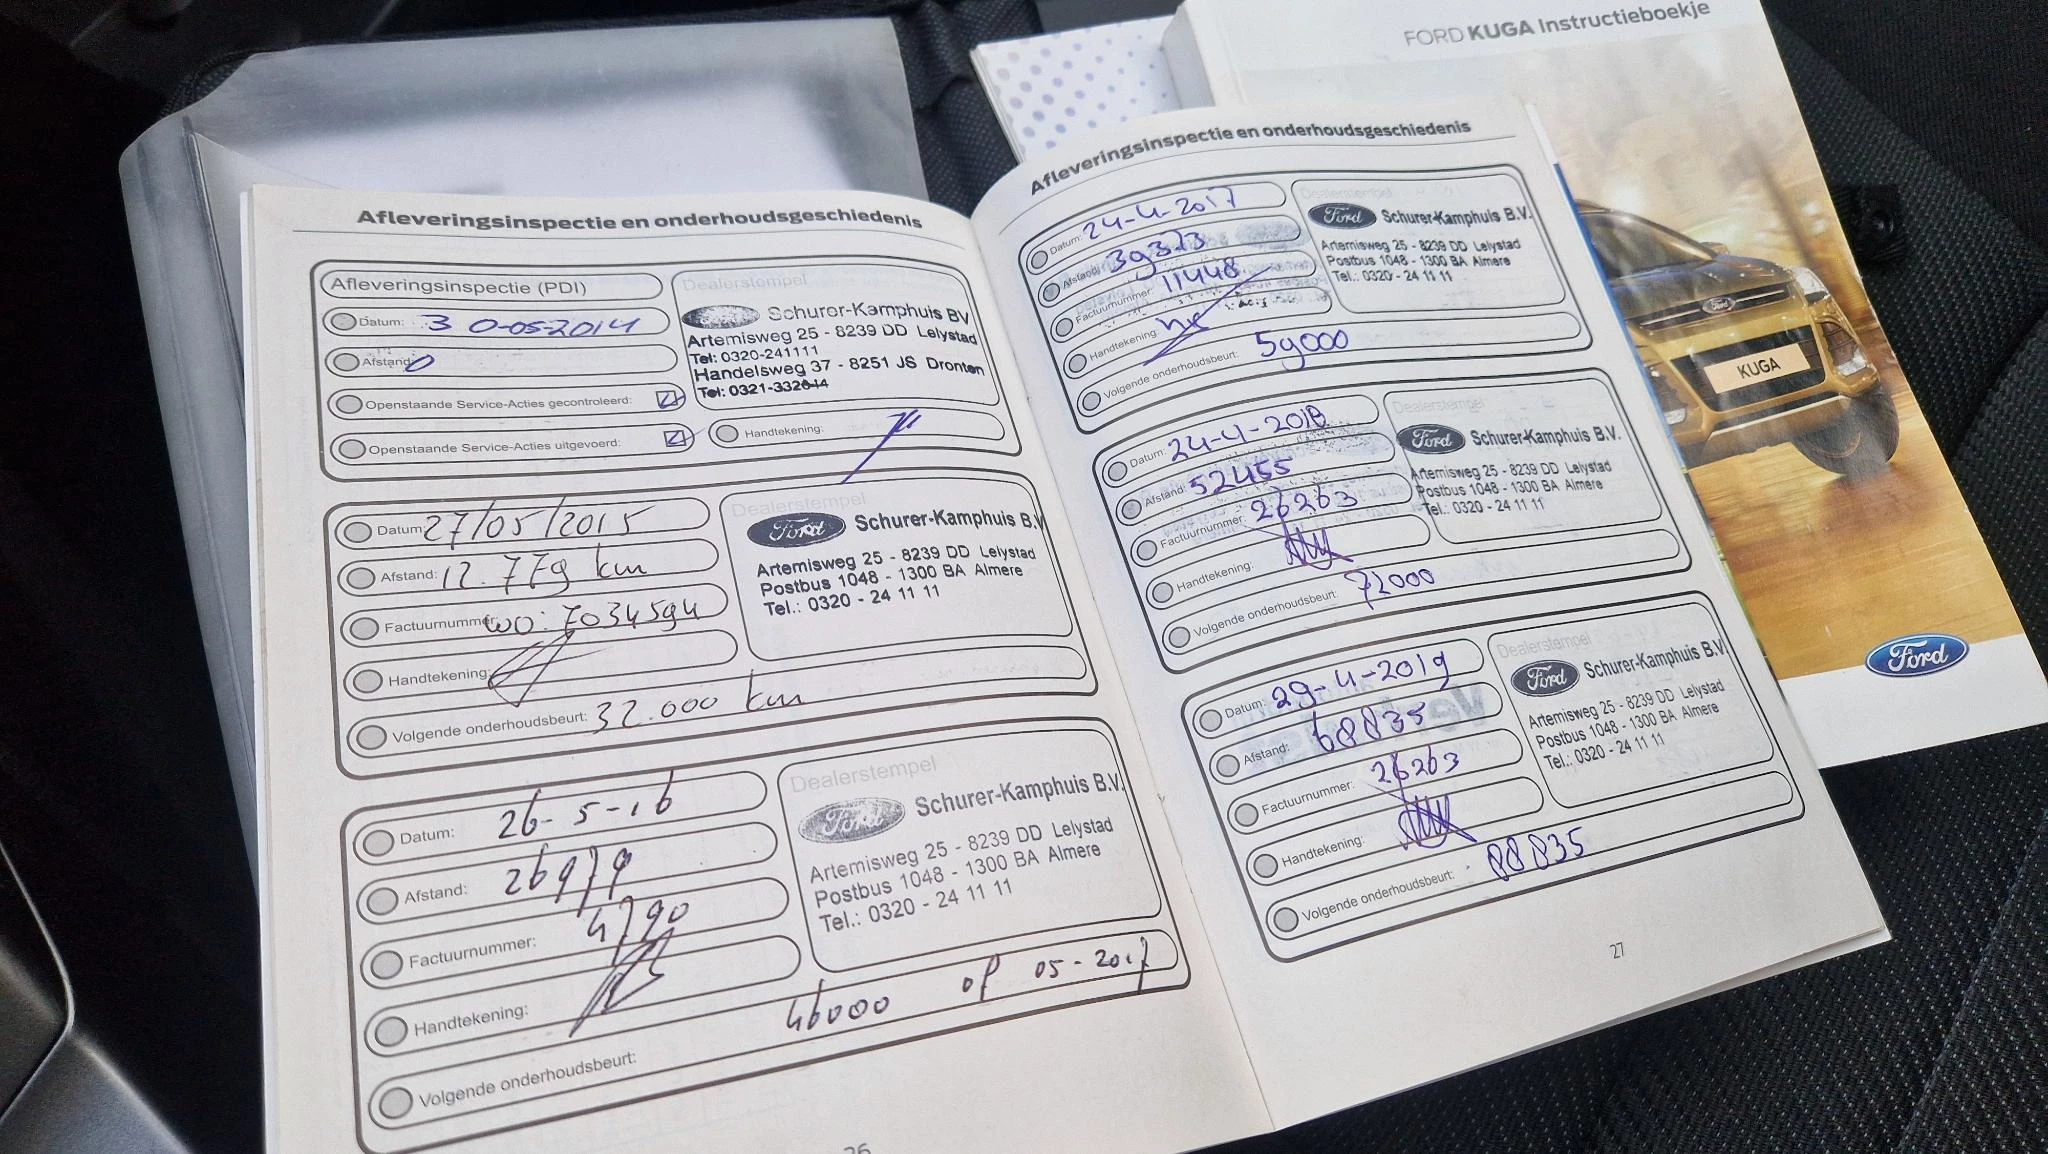 FORD KUGA Instructieboekje
KUGA
Ford
Afleveringsinspectie en onderhoudsgeschiedenis
Afleveringsinspectie (PDI)
Datum: 30-05-2014
Afstand: 0
Openstaande Service-Acties gecontroleerd:
Openstaande Service-Acties uitgevoerd:
Dealerstempel
Schurer-Kamphuis BV
Artemisweg 25 - 8239 DD Lelystad
Tel: 0320-241111
Handelsweg 37 - 8251 JS Dronten
Tel: 0321-332814
Handtekening:
Datum: 27/05/2015
Afstand: 12.779 km
Factuurnummer: WO: 7034594
Handtekening:
Volgende onderhoudsbeurt: 32.000 km
Dealerstempel
Ford Schurer-Kamphuis B.V.
Artemisweg 25 - 8239 DD Lelystad
Postbus 1048 - 1300 BA Almere
Tel.: 0320 - 24 11 11
Datum: 26-5-16
Afstand: 26979
Factuurnummer: 4790
Handtekening:
Volgende onderhoudsbeurt: 46000 of 05-2017
Dealerstempel
Ford Schurer-Kamphuis B.V.
Artemisweg 25 - 8239 DD Lelystad
Postbus 1048 - 1300 BA Almere
Tel.: 0320 - 24 11 11
26
Afleveringsinspectie en onderhoudsgeschiedenis
Datum: 24-4-2017
Afstand: 39373
Factuurnummer: 11448
Handtekening:
Volgende onderhoudsbeurt: 59000
Dealerstempel
Ford Schurer-Kamphuis B.V.
Artemisweg 25 - 8239 DD Lelystad
Postbus 1048 - 1300 BA Almere
Tel.: 0320 - 24 11 11
Datum: 24-4-2018
Afstand: 52455
Factuurnummer: 26263
Handtekening:
Volgende onderhoudsbeurt: 72000
Dealerstempel
Ford Schurer-Kamphuis B.V.
Artemisweg 25 - 8239 DD Lelystad
Postbus 1048 - 1300 BA Almere
Tel.: 0320 - 24 11 11
Datum: 29-4-2019
Afstand: 68835
Factuurnummer: 26263
Handtekening:
Volgende onderhoudsbeurt: 88835
Dealerstempel
Ford Schurer-Kamphuis B.V.
Artemisweg 25 - 8239 DD Lelystad
Postbus 1048 - 1300 BA Almere
Tel.: 0320 - 24 11 11
27